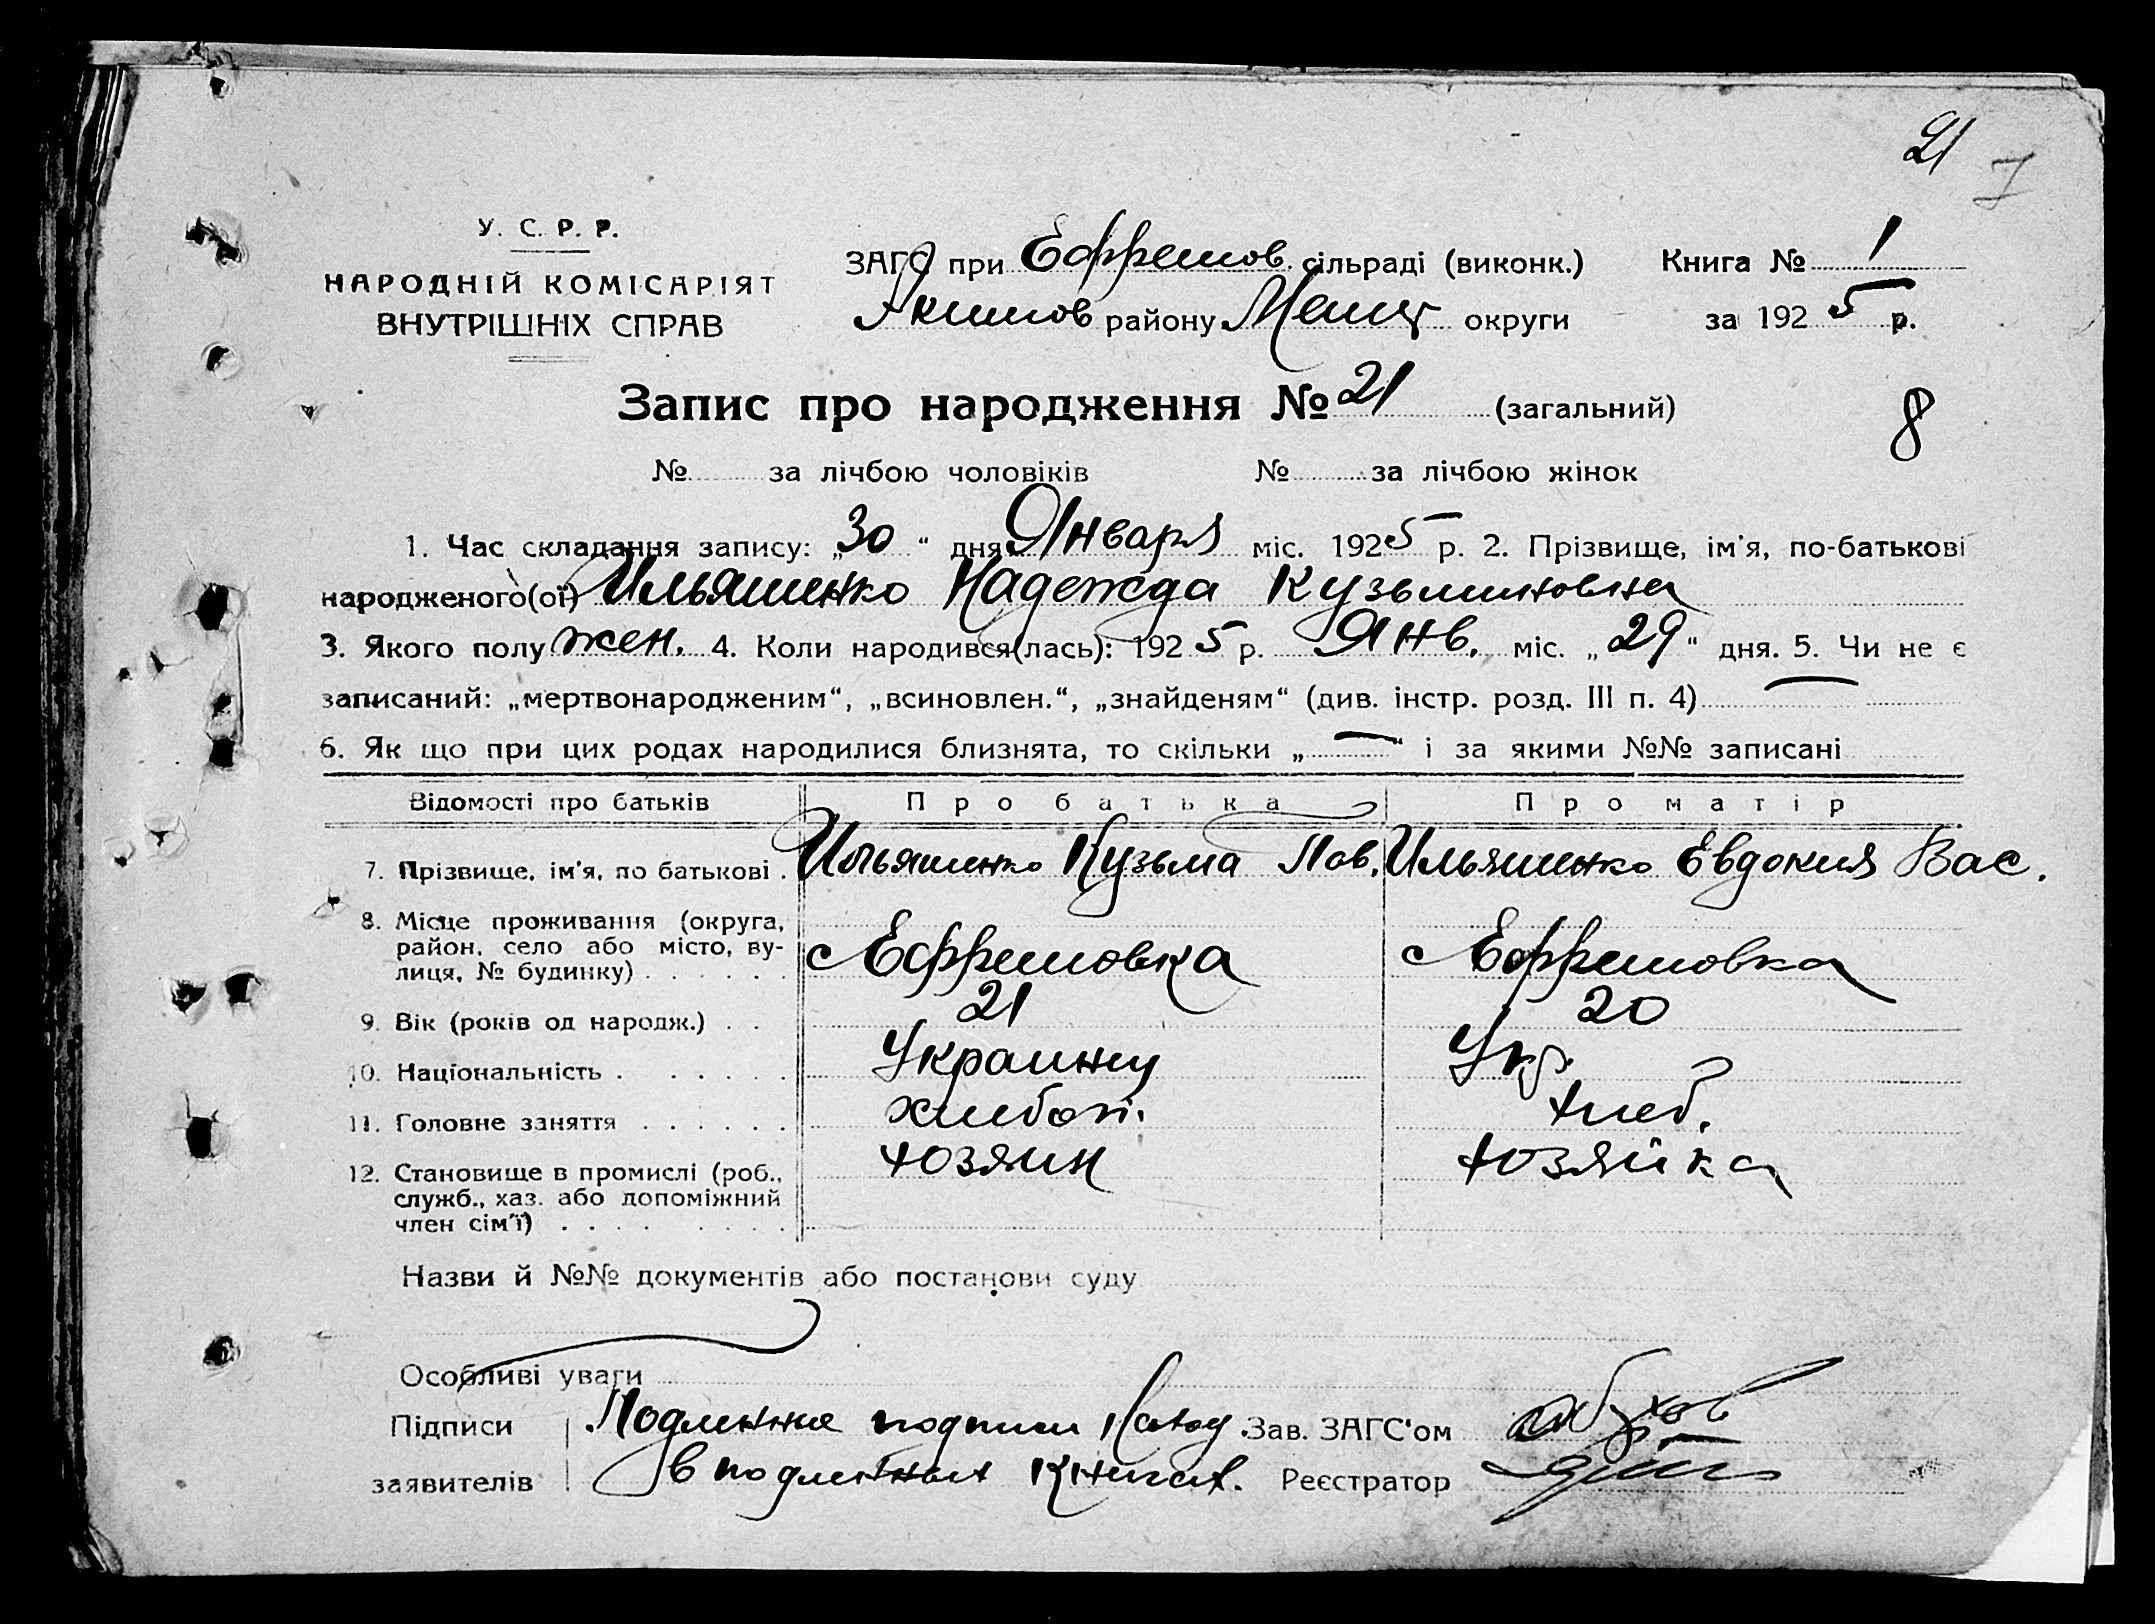 21
У. С. Р. Р.
НАРОДНІЙ КОМІСАРІЯТ
ВНУТРІШНІХ СПРАВ
ЗАГС при Ефремов. сільраді (виконк.) Книга № 1
Якимов району Мелит округи за 1925 р.
Запис про народження № 21 (загальний)
8
№ за лічбою чоловіків № за лічбою жінок
1. Час складання запису: „30“ дня Января міс. 1925 р. 2. Прізвище, ім'я, по-батькові
народженого(ої) Ильяшенко Надежда Кузьминовна
3. Якого полу жен. 4. Коли народився(лась): 1925 р. Янв. міс. „29“ дня. 5. Чи не є
записаний: „мертвонародженим“, „всиновлен.“, „знайденям“ (див. інстр. розд. III п. 4) —
6. Як що при цих родах народилися близнята, то скільки „—“ і за якими №№ записані
Відомості про батьків Про батька Про матір
7. Прізвище, ім'я, по батькові . Ильяшенко Кузьма Пав. Ильяшенко Евдокия Вас.
8. Місце проживання (округа,
район, село або місто, ву-
лиця, № будинку) . . . . . с Ефремовка с Ефремовка
9. Вік (років од народж.) . . 21 20
10. Національність . . . . . . Украинец Укр.
11. Головне заняття . . . . . . хлебоп. хлеб.
12. Становище в промислі (роб.,
служб., хаз. або допоміжний
член сім'ї) . . . . . . . . хозяин хозяйка
Назви й №№ документів або постанови суду
Особливі уваги
Підписи Подлинные подписи наход. Зав. ЗАГС'ом
заявителів в подлинных книгах. Реєстратор